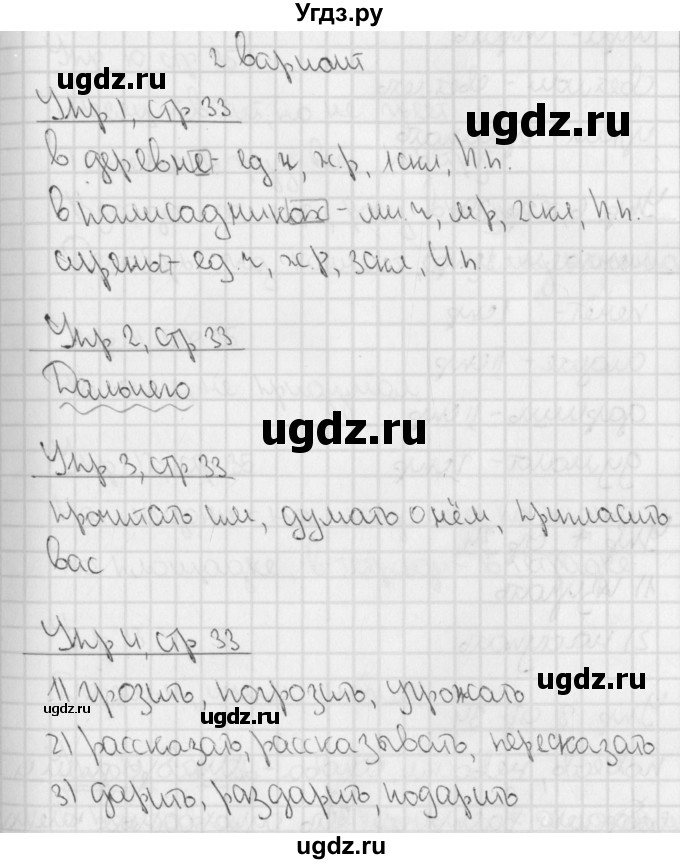 Угдз.ру
2 вариант
ugdz.ru
Упр 1, стр 33
ugdz.ru
в деревне - ед.ч, ж.р, 1скл, П.п.
в палисадниках - мн.ч, м.р, 2скл, П.п.
сирень - ед.ч, ж.р, 3скл, И.п
Упр 2, стр 33
Дальнего
ugdz.ru
Упр 3, стр 33
прочитать им, думать о нём, пригласить
вас
Упр 4, стр 33
ugdz.ru
1) грозить, погрозить, угрожать
ugdz.ru
ugdz.ru
2) рассказать, рассказывать, пересказать
3) дарить, раздарить, подарить
ugdz.ru